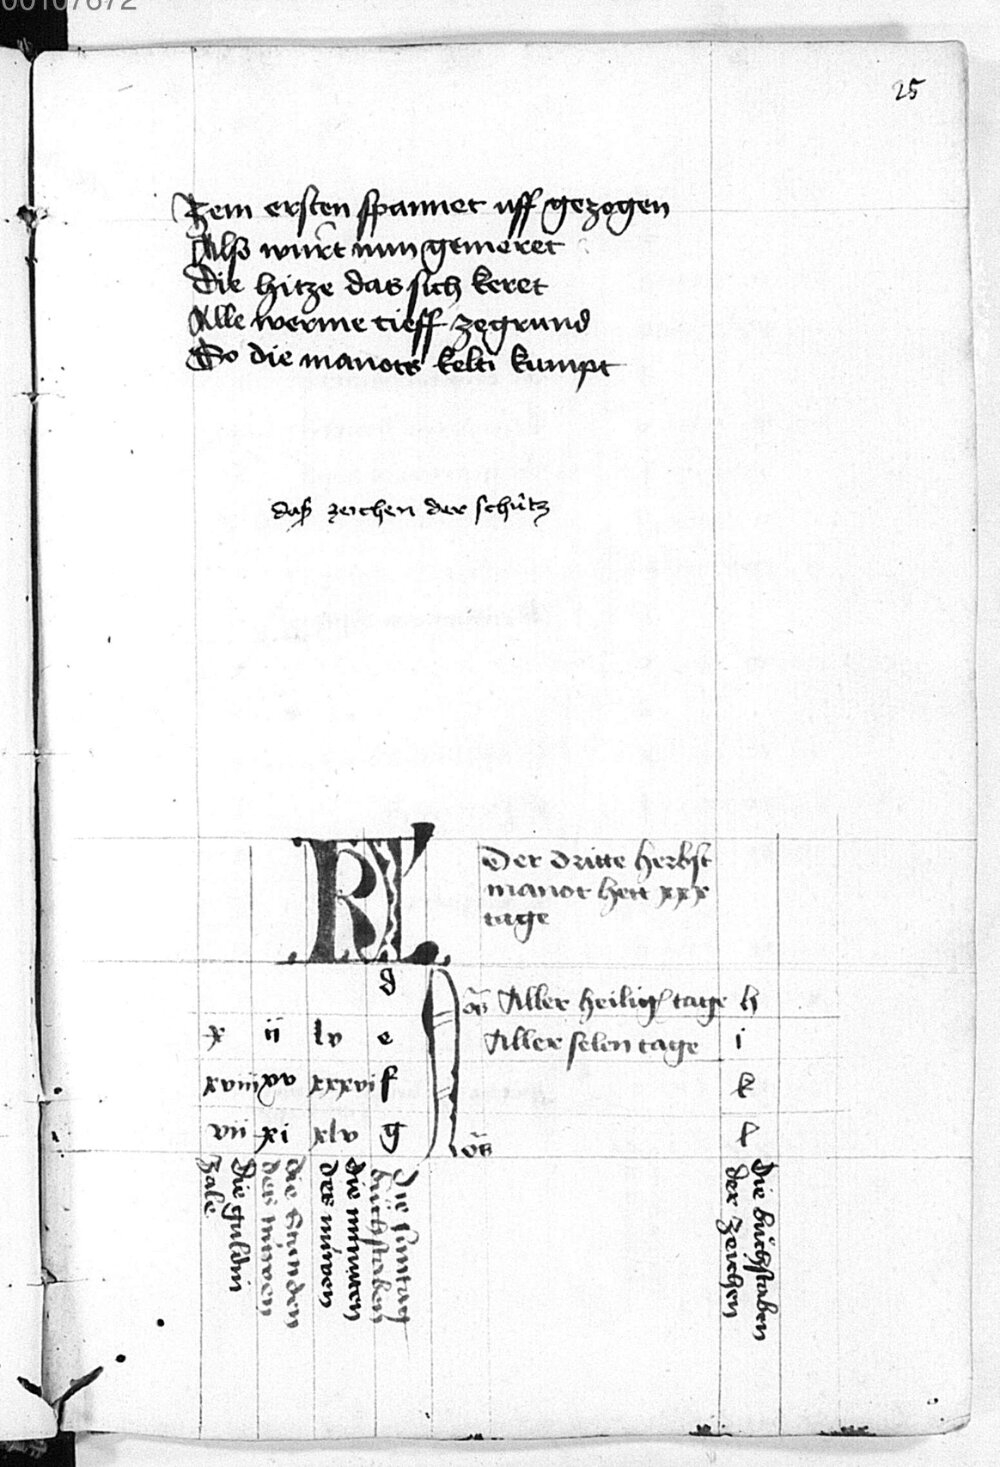 00107672
25
Zem ersten spannet uff gezogen
Alß wurt nun gemeret
Die hitze das sich keret
Alle werme tieff ze grund
So die manots kelti kumpt
daß zeichen der schütz
KL
Der dritte herbst
manot hett xxx
tage
d Aller heilig tage h
x ii lv e Aller selen tage i
xviii xv xxxvi f k
vii xi xlv g l
Die guldin
zale
die stunden
des núwen
die minuten
des núwen
die suntag
buͦchstaben
Die buͦchstaben
der zeichen